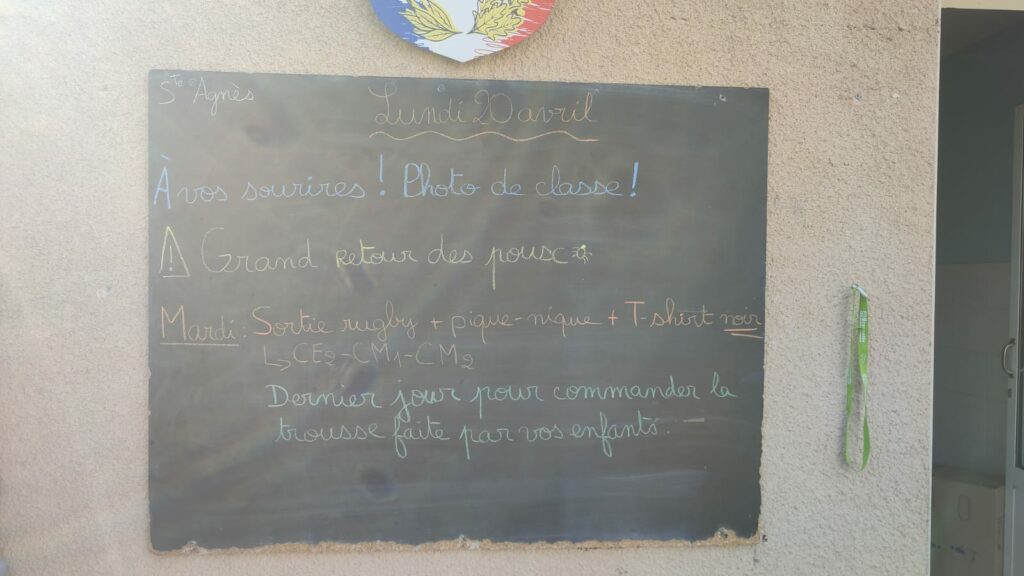 Ste Agnès
Lundi 20 avril
À vos sourires ! Photo de classe !
! Grand retour des poux
Mardi : Sortie rugby + pique-nique + T-shirt noir
↳ CE2-CM1-CM2
Dernier jour pour commander la
trousse faite par vos enfants.